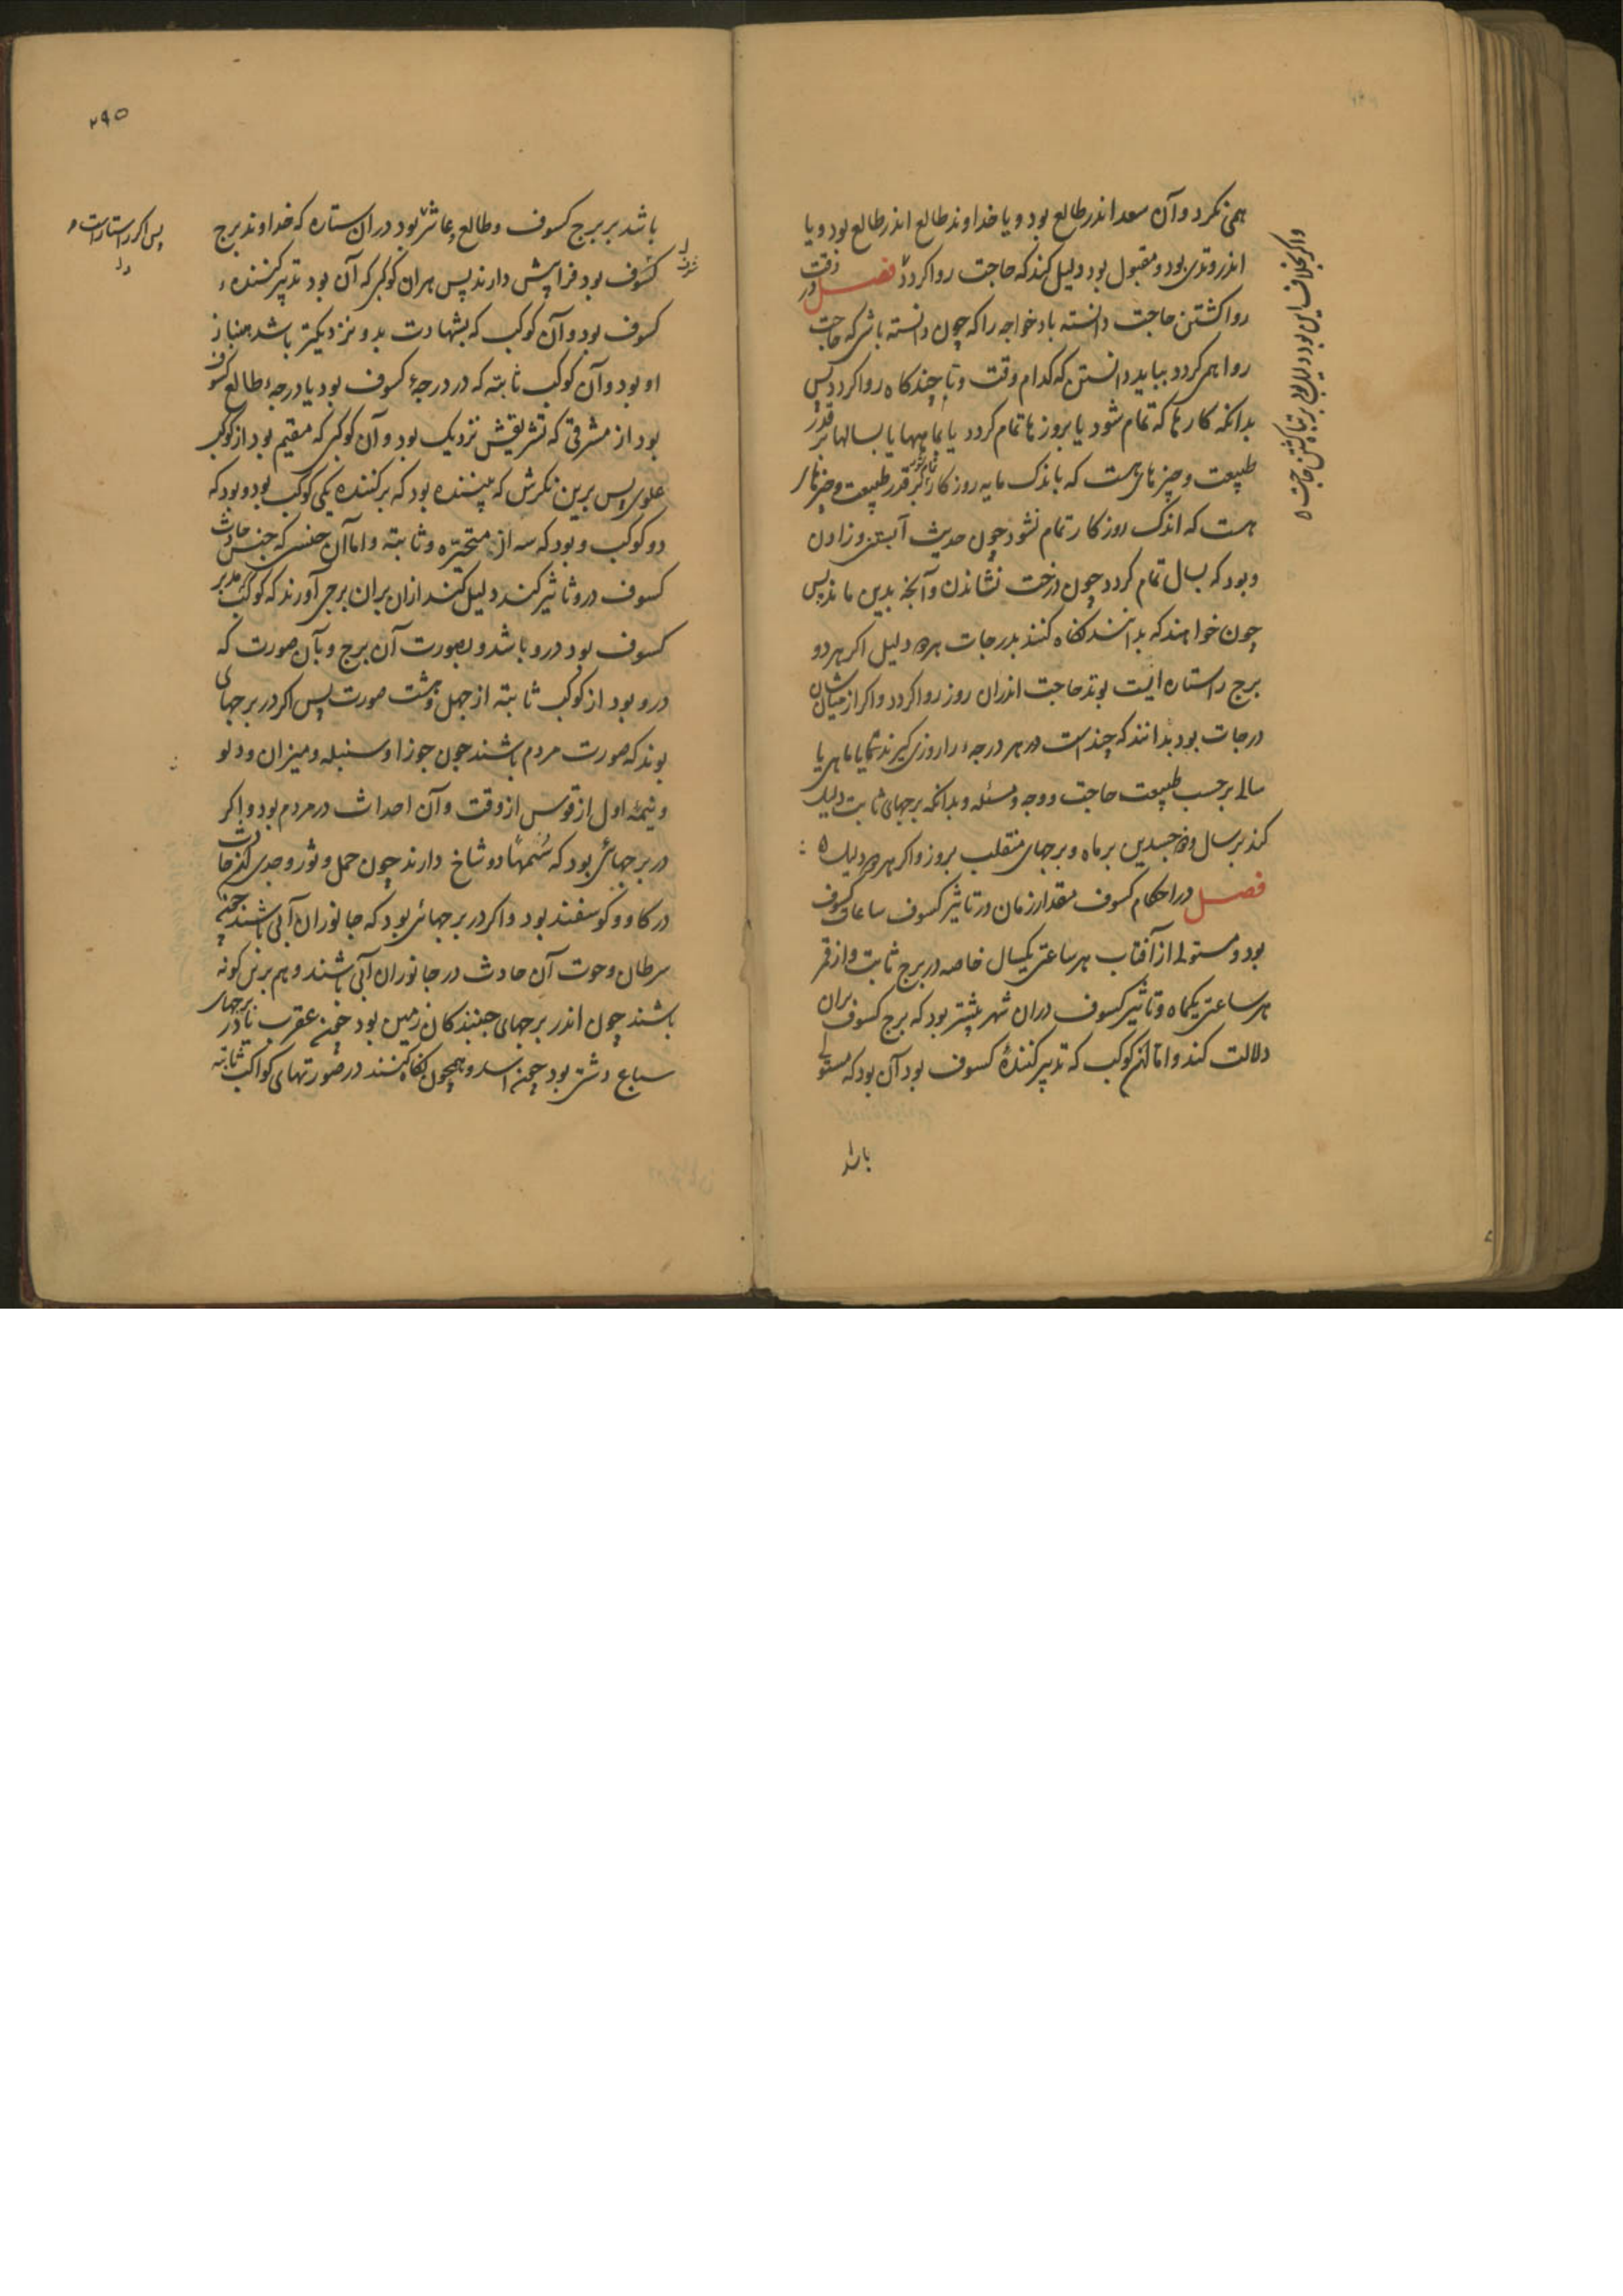 همی نکرد و آن سعد اندر طالع بود و یا خداوند طالع اندر طالع بود و یا
اندر وتدی بود و مقبول بود دلیل کند که حاجت روا کردد فصل در وقت
روا کشتن حاجت دانسته باد خواجه را که چون دانسته باشی که حاجت
روا همی کردد بباید دانستن که کدام وقت و تا چند کاه روا کردد پس
بدانکه کارها که تمام شود یا بروزها تمام کردد یا بماهها یا بسالها بر قدر
طبیعت و چیزهای هست که باندک مایه روزکار تمام شود بر قدر طبیعت و چیزهای
هست که اندک روزکار تمام نشود چون حدیث آبستنی و زادن
و بود که بسال تمام کردد چون درخت نشاندن و آنچه بدین ماند پس
چون خواهند که بدانند نکاه کنند بدرجات هر دو دلیل اکر هر دو
برج راستاراست بوند حاجت اندران روز روا کردد و اکر از میان شان
درجات بود بدانند که چند است هر درجه را روزی کیرند یا ماهی یا
سالی بر حسب طبیعت حاجت و وجه مسئله و بدانکه برجهای ثابت دلیل
کند بر سال و ذو جسدین بر ماه و برجهای منقلب بروز و اکر هر دو دلیل ه
فصل در احکام کسوف مقدار زمان در تاثیر کسوف ساعات کسوف
بود و مستولی از آفتاب هر ساعتی یکسال خاصه در برج ثابت و از قمر
هر ساعتی یکماه و تاثیر کسوف دران شهر بیشتر بود که برج کسوف بران
دلالت کند و اما آن کوکب که تدبیر کنندهٔ کسوف بود آن بود که مستولی
باشد
واکر بخلاف این بود دلیل بود بر تباه کشتن حاجت ه
۲۹۵
باشد بر برج کسوف و طالع و عاشر بود دران ستاره که خداوند برج
کسوف بود فرا پیش دارند پس هران کوکبی که آن بود تدبیر کننده
کسوف بود و آن کوکب که بشهادت بدو نزدیکتر باشد هنباز
او بود و آن کوکب ثابته که در درجهٔ کسوف بود یا درجهٔ طالع کسوف
بود از مشرقی که تشریقش نزدیک بود و آن کوکبی که مقیم بود از کوکب
علوی پس برین نکرش که بود که بر کننده یکی کوکب بود و بود که
دو کوکب و بود که سه از متحیره و ثابته و اما آن جنسی که جنس حادث
کسوف درو تاثیر کند دلیل کنند ازان بران برجی آورند که کوکب مدبر
کسوف بود درو باشد و بصورت آن برج و بآن صورت که
درو بود از کوکب ثابته از چهل و هشت صورت پس اکر در برجهای
بوند که صورت مردم باشند چون جوزا و سنبله و میزان و دلو
و نیمهٔ اول از قوس از وقت و آن احداث در مردم بود و اکر
در برجهائی بود که سُمها دو شاخ دارند چون حمل و ثور و جدی
در کاو و کوسفند بود و اکر در برجهائی بود که جانوران آبی باشند چون
سرطان و حوت آن حادث در جانوران آبی باشند و هم برین کونه
باشند چون اندر برجهای جنبندکان زمین بود چون عقرب یا در برجهای
سباع دشتی بود چون اسد و همچون نکاه کنند در صورتهای کواکب ثابته
پس اکر راستاراست